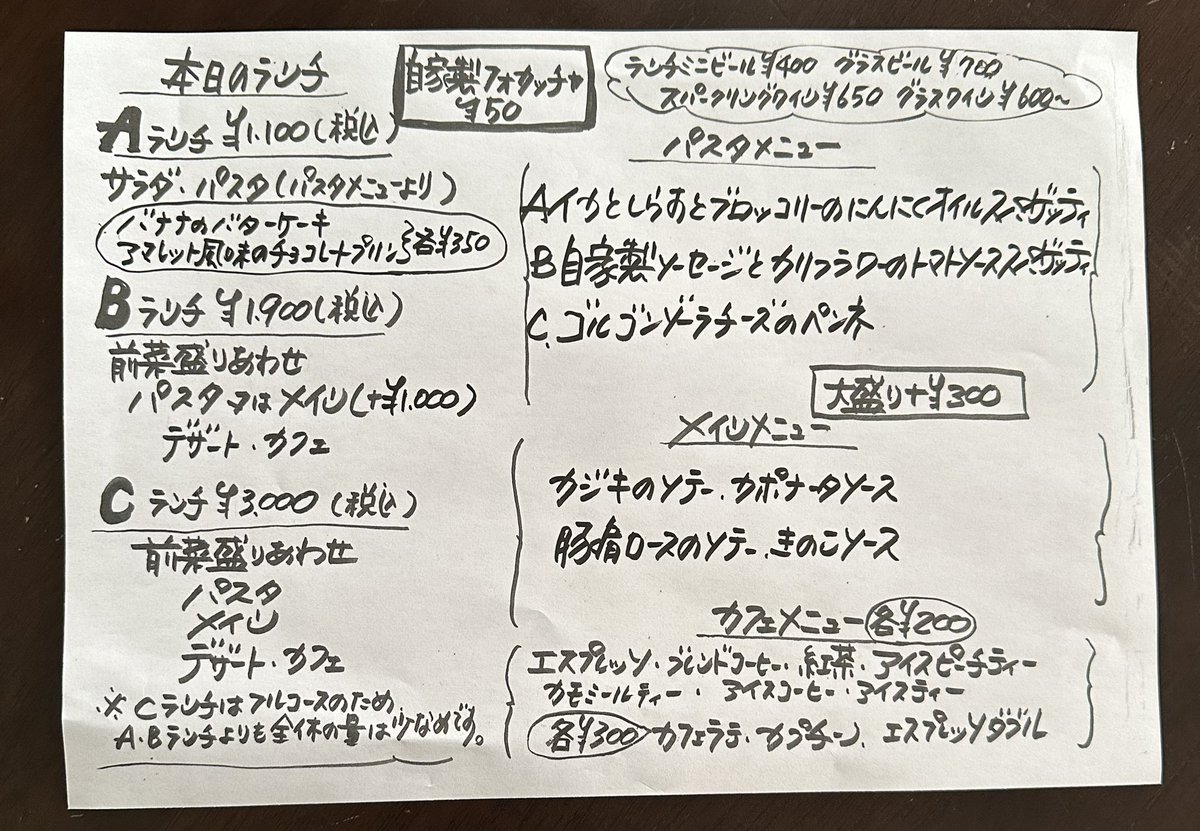 本日のランチ
Aランチ ¥1,100(税込)
サラダ・パスタ(パスタメニューより)
バナナのバターケーキ
アマレット風味のチョコレートプリン}各¥350
Bランチ ¥1,900(税込)
前菜盛りあわせ
パスタ又はメイン(+¥1,000)
デザート・カフェ
Cランチ ¥3,000(税込)
前菜盛りあわせ
パスタ
メイン
デザート・カフェ
※Cランチはフルコースのため、
A・Bランチよりも全体の量は少なめです。
自家製フォカッチャ
¥50
ランチミニビール¥400 グラスビール¥700
スパークリングワイン¥650 グラスワイン¥600〜
パスタメニュー
A イカとしらすとブロッコリーのにんにくオイルスパゲッティ
B 自家製ソーセージとカリフラワーのトマトソーススパゲッティ
C. ゴルゴンゾーラチーズのペンネ
大盛り+¥300
メインメニュー
カジキのソテー、カポナータソース
豚肩ロースのソテー、きのこソース
カフェメニュー 各¥200
エスプレッソ・ブレンドコーヒー・紅茶・アイスピーチティー
カモミールティー・アイスコーヒー・アイスティー
各¥300 カフェラテ・カプチーノ、エスプレッソダブル